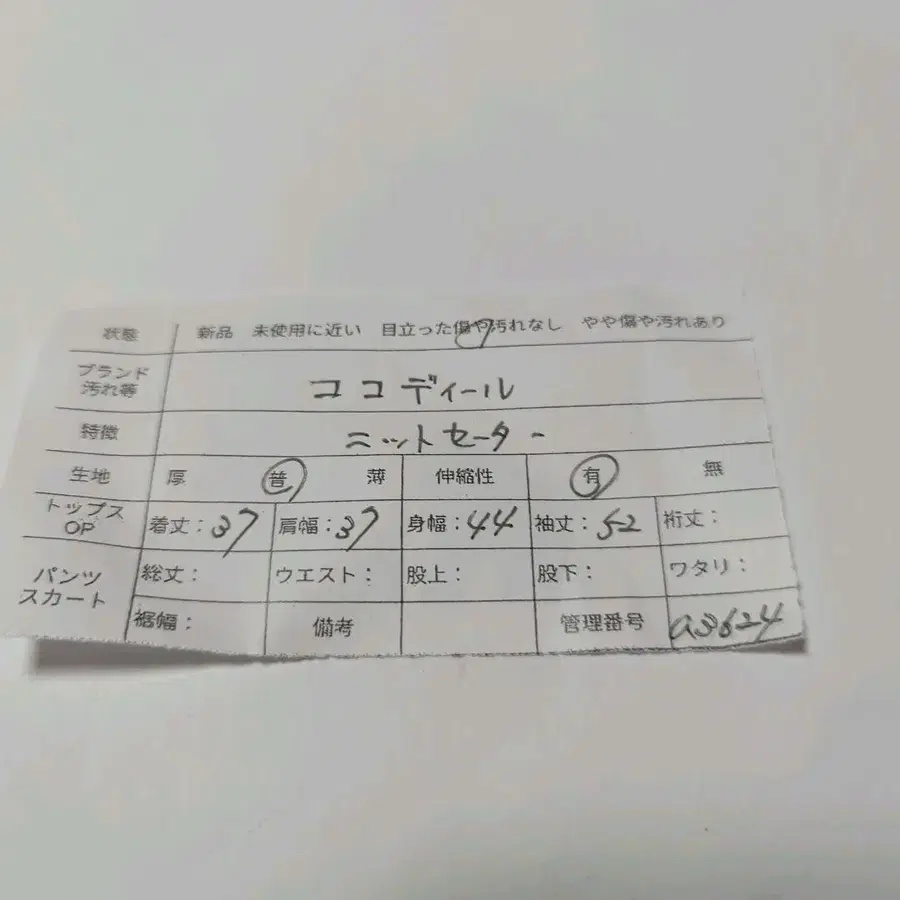 状態 新品 未使用に近い 目立った傷や汚れなし やや傷や汚れあり
ブランド
汚れ等 ココディール
特徴 ニットセーター
生地 厚 普 薄 伸縮性 有 無
トップス
OP 着丈:37 肩幅:37 身幅:44 袖丈:52 裄丈:
パンツ
スカート 総丈: ウエスト: 股上: 股下: ワタリ:
裾幅: 備考 管理番号 a3624